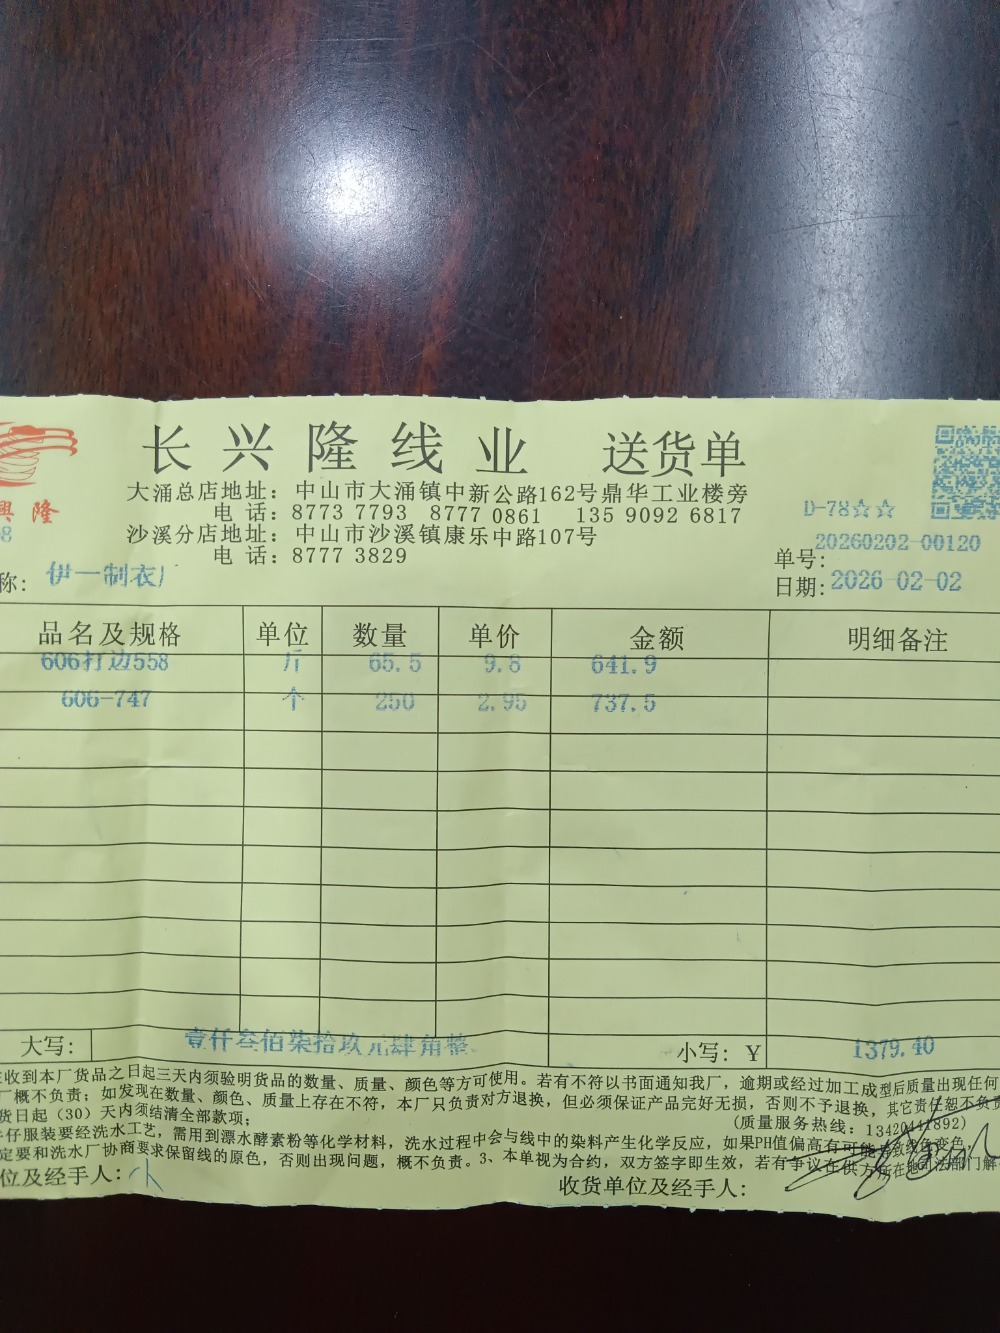 长兴隆线业 送货单
大涌总店地址：中山市大涌镇中新公路162号鼎华工业楼旁
电 话：8773 7793 8777 0861 135 9092 6817
沙溪分店地址：中山市沙溪镇康乐中路107号
电 话：8777 3829
興隆
D-78☆☆
单号：20260202-00120
称：伊一制衣厂
日期：2026-02-02
品名及规格 单位 数量 单价 金额 明细备注
606打边558 斤 65.5 9.8 641.9
606-747 个 250 2.95 737.5
大写：壹仟叁佰柒拾玖元肆角整 小写：￥ 1379.40
收到本厂货品之日起三天内须验明货品的数量、质量、颜色等方可使用。若有不符以书面通知我厂，逾期或经过加工成型后质量出现任何
厂概不负责；如发现在数量、颜色、质量上存在不符，本厂只负责对方退换，但必须保证产品完好无损，否则不予退换，其它责任恕不负责
货日起（30）天内须结清全部款项；
(质量服务热线：13420441892)
仔服装要经洗水工艺，需用到漂水酵素粉等化学材料，洗水过程中会与线中的染料产生化学反应，如果PH值偏高有可能导致线色变色
定要和洗水厂协商要求保留线的原色，否则出现问题，概不负责。3、本单视为合约，双方签字即生效，若有争议在供方所在地司法部门解
位及经手人：
收货单位及经手人：